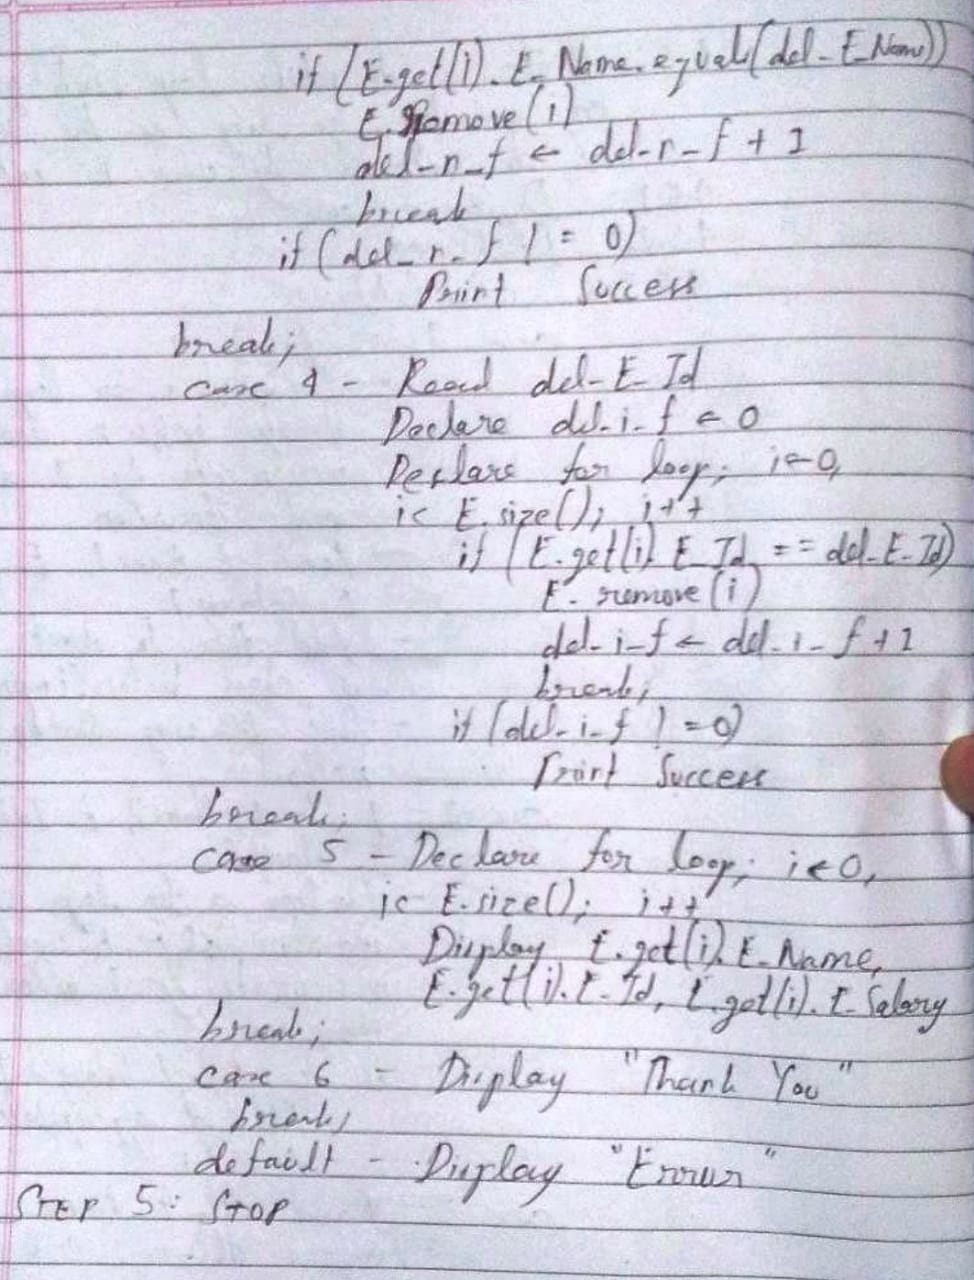 if (E.get(i). E_Name.equal(del_E_Name))
E.Remove(i)
del_n_f ← del_n_f + 1
break
if (del_n_f != 0)
Print Success
break;
case 4 - Read del_E_Id
Declare del_i_f ← 0
Declare for loop; i←0,
i< E.size(); i++
if (E.get(i).E_Id == del_E_Id)
E.remove(i)
del_i_f ← del_i_f +1
break;
if (del_i_f != 0)
Print Success
break;
case 5 - Declare for loop; i←0,
i< E.size(); i++
Display E.get(i).E_Name,
E.get(i).E_Id, E.get(i).E_Salary
break;
case 6 - Display "Thank You"
break;
default - Display "Error"
STEP 5: STOP